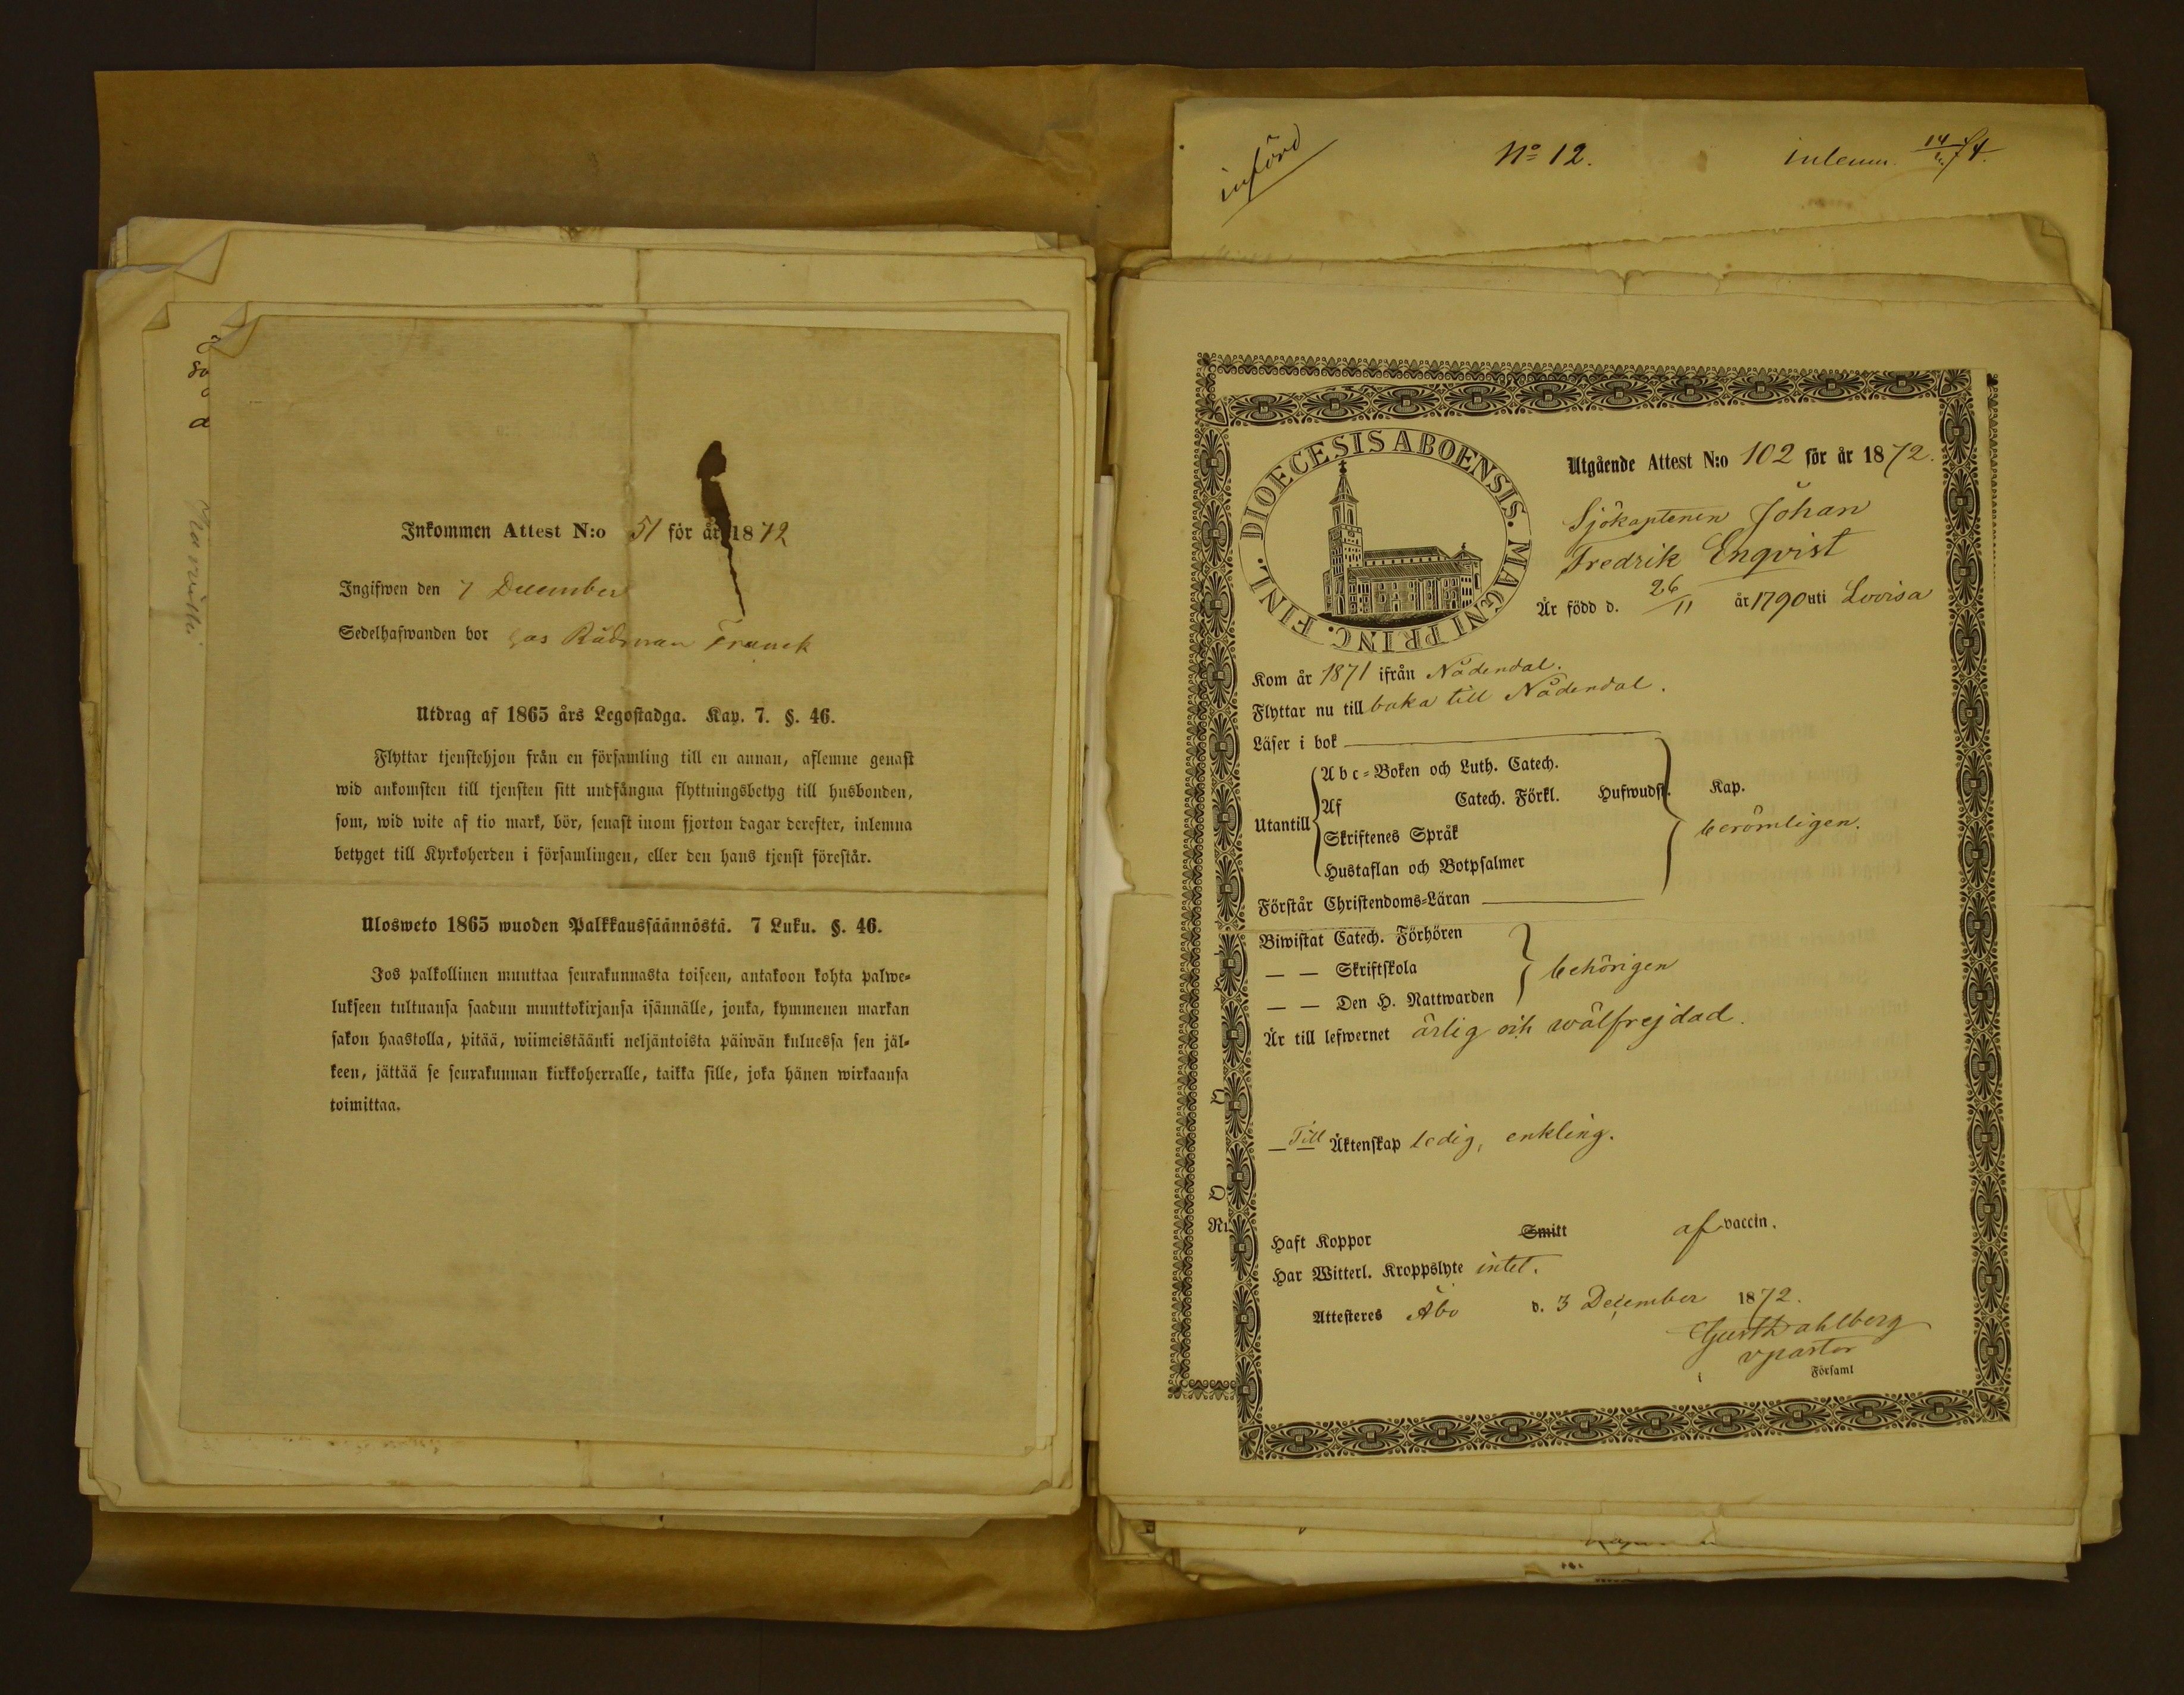 Inkommen Attest N:o 51 för år 1872
Ingifwen den 7 December
Sedelhafwanden bor hos Rådman Franck
Utdrag af 1865 års Legostadga. Kap. 7. §. 46.
Flyttar tjenstehjon från en församling till en annan, aflemne genast
wid ankomsten till tjensten sitt undfångna flyttningsbetyg till husbonden,
som, wid wite af tio mark, bör, senast inom fjorton dagar derefter, inlemna
betyget till Kyrkoherden i församlingen, eller den hans tjenst förestår.
Ulosweto 1865 wuoden Palkkaussäännöstä. 7 Luku. §. 46.
Jos palkollinen muuttaa seurakunnasta toiseen, antakoon kohta palwe-
lukseen tultuansa saadun muuttokirjansa isännälle, jonka, kymmenen markan
sakon haastolla, pitää, wiimeistäänki neljäntoista päiwän kuluessa sen jäl-
keen, jättää se seurakunnan kirkkoherralle, taikka sille, joka hänen wirkaansa
toimittaa.
införd
No 12.
inlemn. 14/4 74.
DIOECESIS ABOENSIS. MAGNI PRINC. FINL.
Utgående Attest N:o 102 för år 1872.
Sjökaptenen Johan
Fredrik Enqvist
Är född d. 26/11 år 1790 uti Lovisa
Kom år 1871 ifrån Nådendal.
Flyttar nu till baka till Nådendal.
Läser i bok
Utantill
A b c-Boken och Luth. Catech.
Af Catech. Förkl. Hufwudst. Kap.
Skriftenes Språk
berömligen.
Hustaflan och Botpsalmer
Förstår Christendoms-Läran
Biwistat Catech. Förhören
— — Skriftskola
behörigen
— — Den H. Nattwarden
Är till lefwernet ärlig och wälfrejdad.
— Till Äktenskap ledig, enkling.
Haft Koppor Smitt af vaccin.
Har Witterl. Kroppslyte intet.
Attesteres Åbo d. 3 December 1872.
Gust Dahlberg
v pastor
i Församl